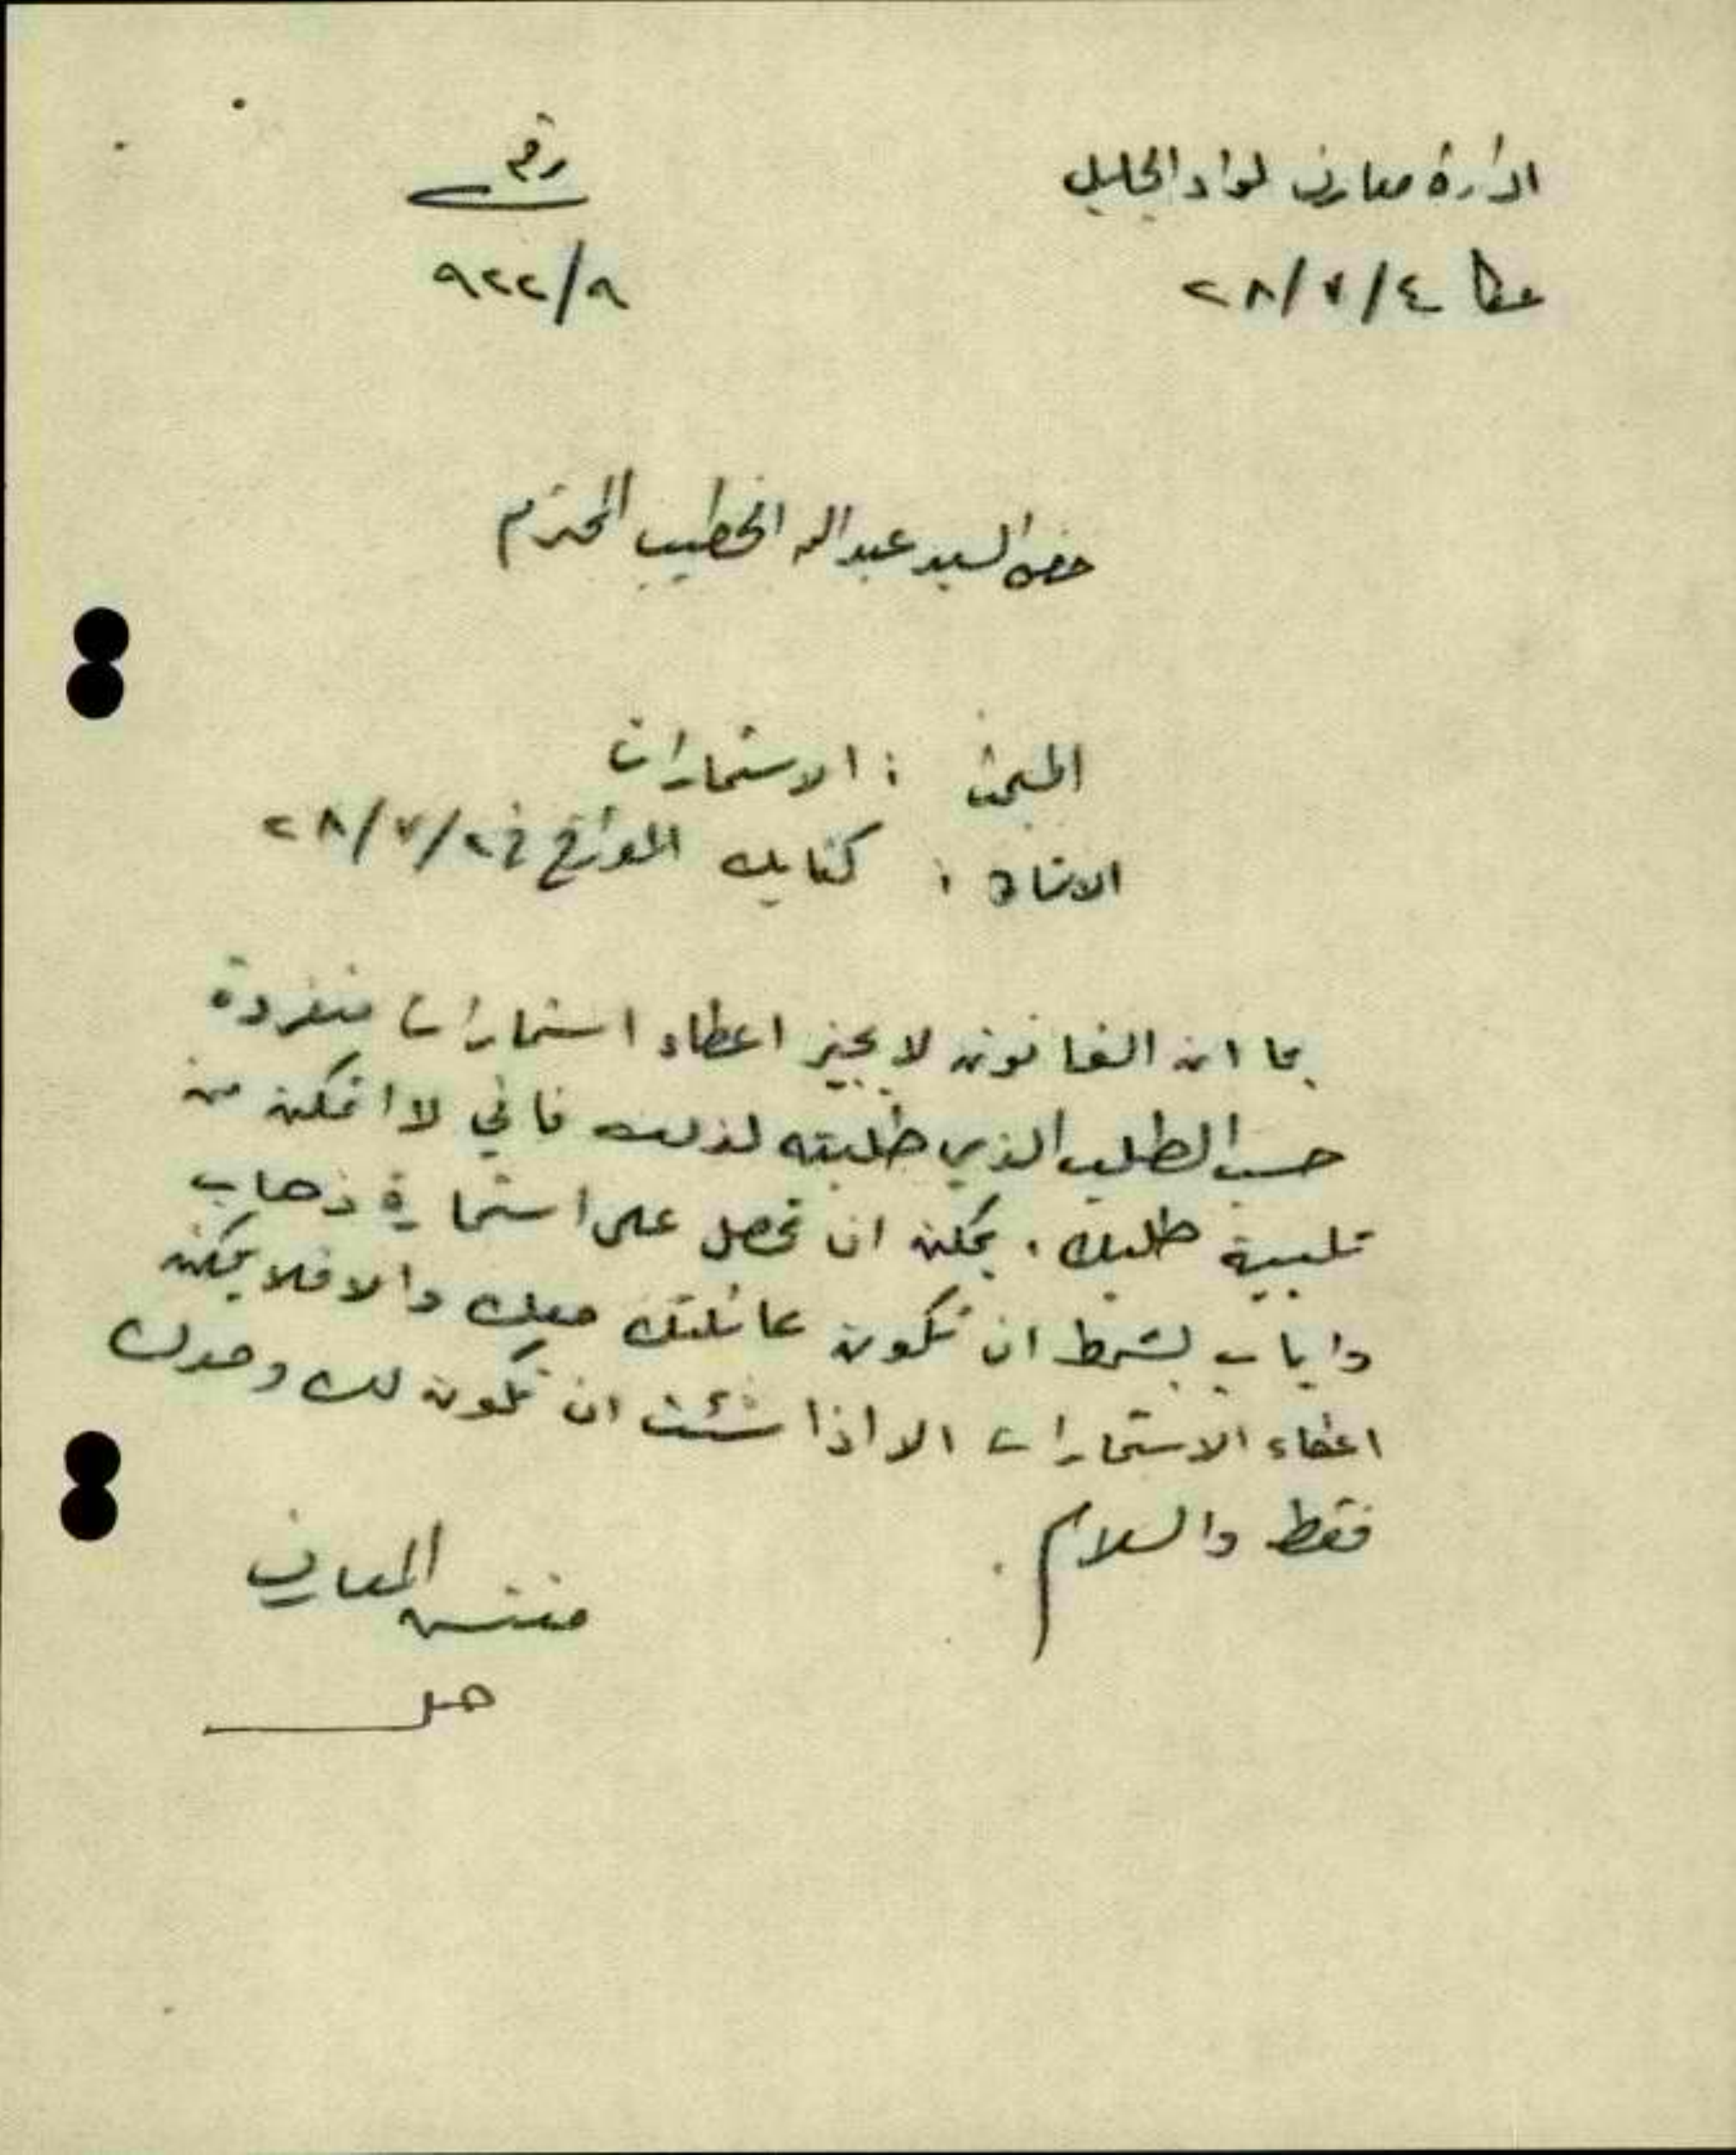 ادارة معارف لواء الجليل
رقم
عكا ٢٨/٧/٤
٩٢٢/٩
حضرة السيد عبد الله الخطيب المحترم
المبحث : الاستمارات
الاشارة : كتابك المؤرخ في ٢٨/٧/٢
بما ان القانون لا يجيز اعطاء استمارات منفردة
حسب الطلب الذي طلبته لذلك فاني لا اتمكن من
تلبية طلبك . يمكن ان تحصل على استمارة ذهاب
واياب بشرط ان تكون عائلتك معك والا فلا يمكن
اعطاء الاستمارات الا اذا شئت ان تكون لك وحدك
فقط والسلام .
مفتش المعارف